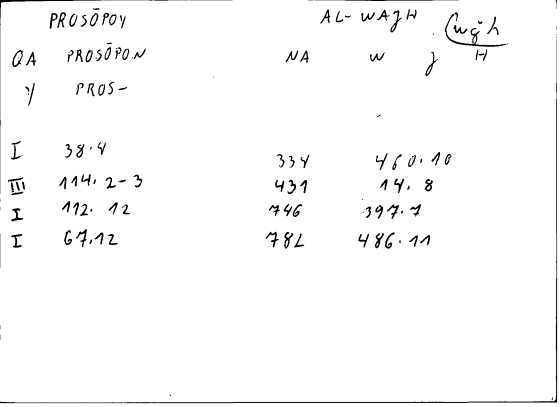 PROSŌPOY AL-WAJH (wǧh
QA PROSŌPON NA W J H
Y PROS-
I 38.4 334 460.10
III 114.2-3 431 14.8
I 112.12 746 397.7
I 67.12 782 486.11